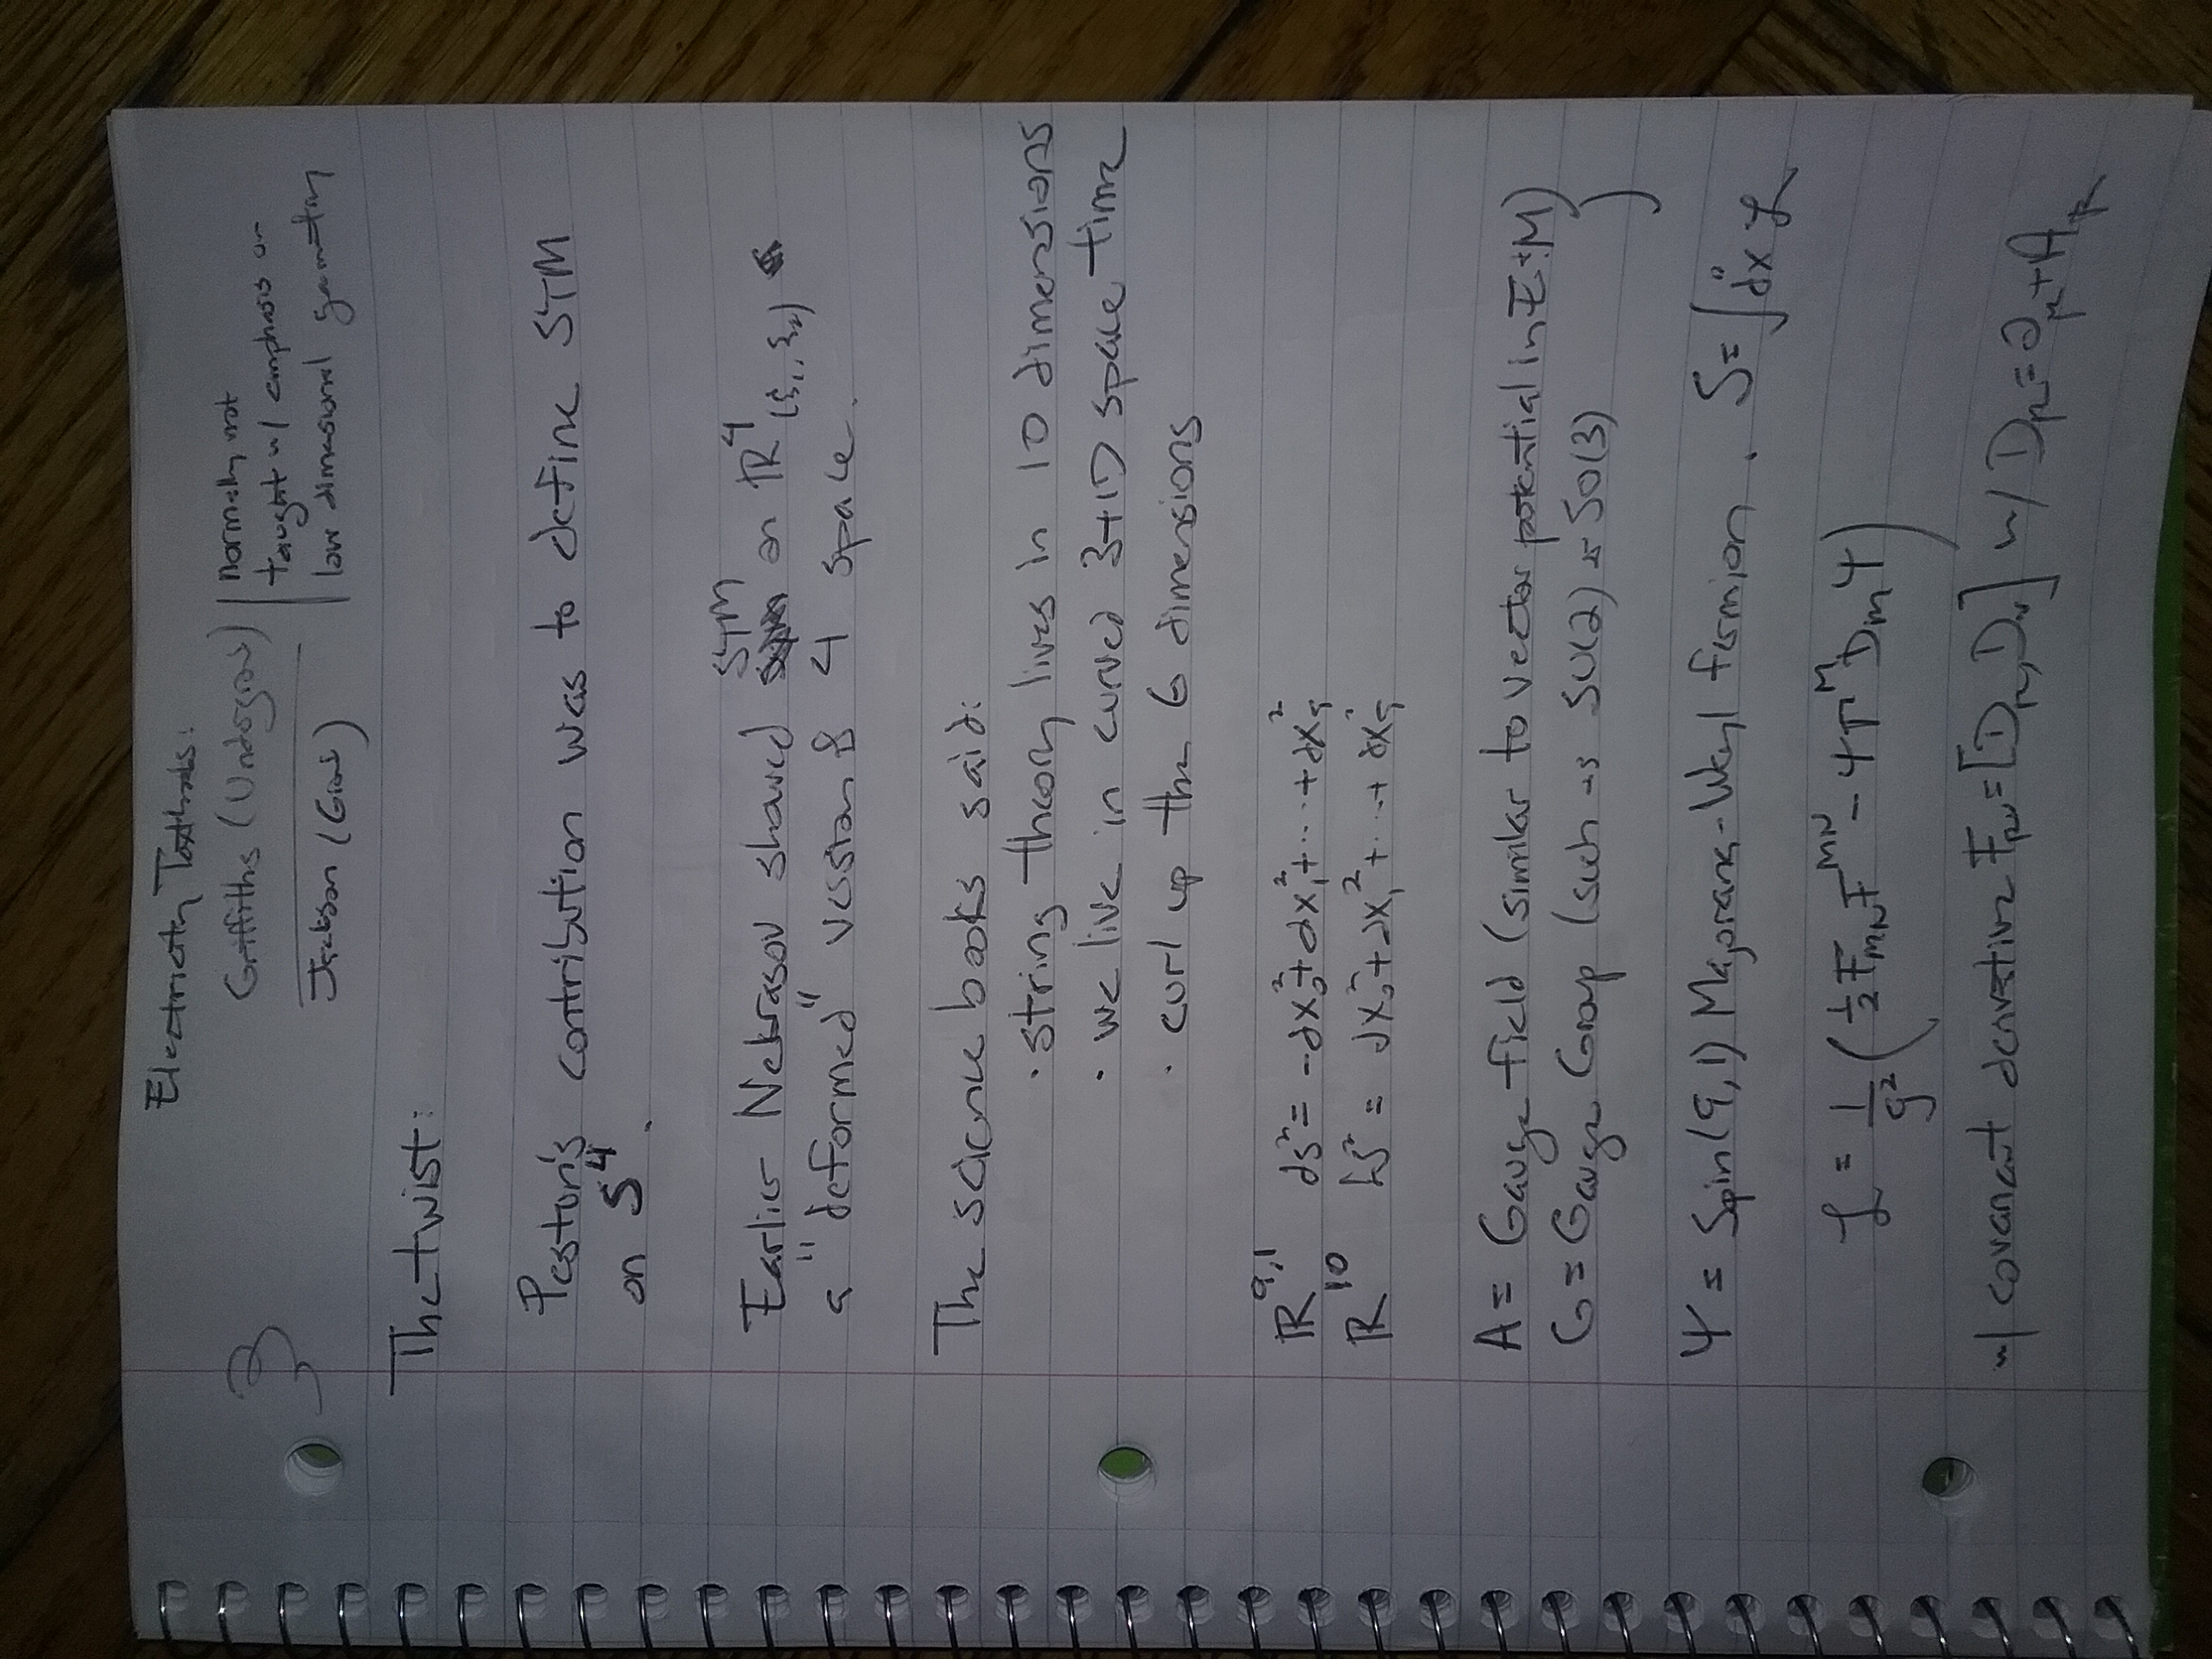 Electricity Textbooks:
3
Griffiths (Undergrad)
Jackson (Grad)
normally not
taught w/ emphasis on
low dimensional geometry
The twist:
Pestun's contribution was to define SYM
on S⁴.
Earlier Nekrasov showed SYM on ℝ⁴(ξ₁, ξ₂)
a "deformed" version of 4 space.
The science books said:
· string theory lives in 10 dimensions
· we live in curved 3+1D space time
· curl up the 6 dimensions
ℝ⁹,¹ ds² = -dx₀²+dx₁²+···+dx₉²
ℝ¹⁰ ds² = dx₀²+dx₁²+···+dx₉²
A = Gauge field (similar to vector potential in E+M)
G = Gauge Group (such as SU(2) or SO(3))
Ψ = Spin(9,1) Majorana-Weyl fermion. S = ∫dx ℒ
ℒ = 1/g² (½ F_MN F^MN - ΨΓ^M D_M Ψ)
w/ covariant derivative F_μν = [D_μ, D_ν] w/ D_μ = ∂_μ + A_μ